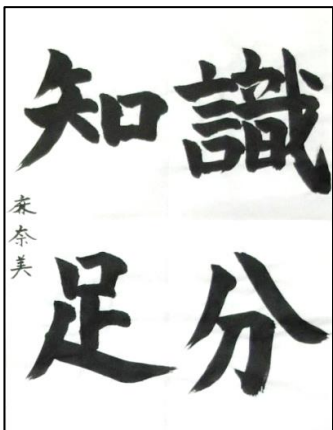 識分
知足
麻奈美